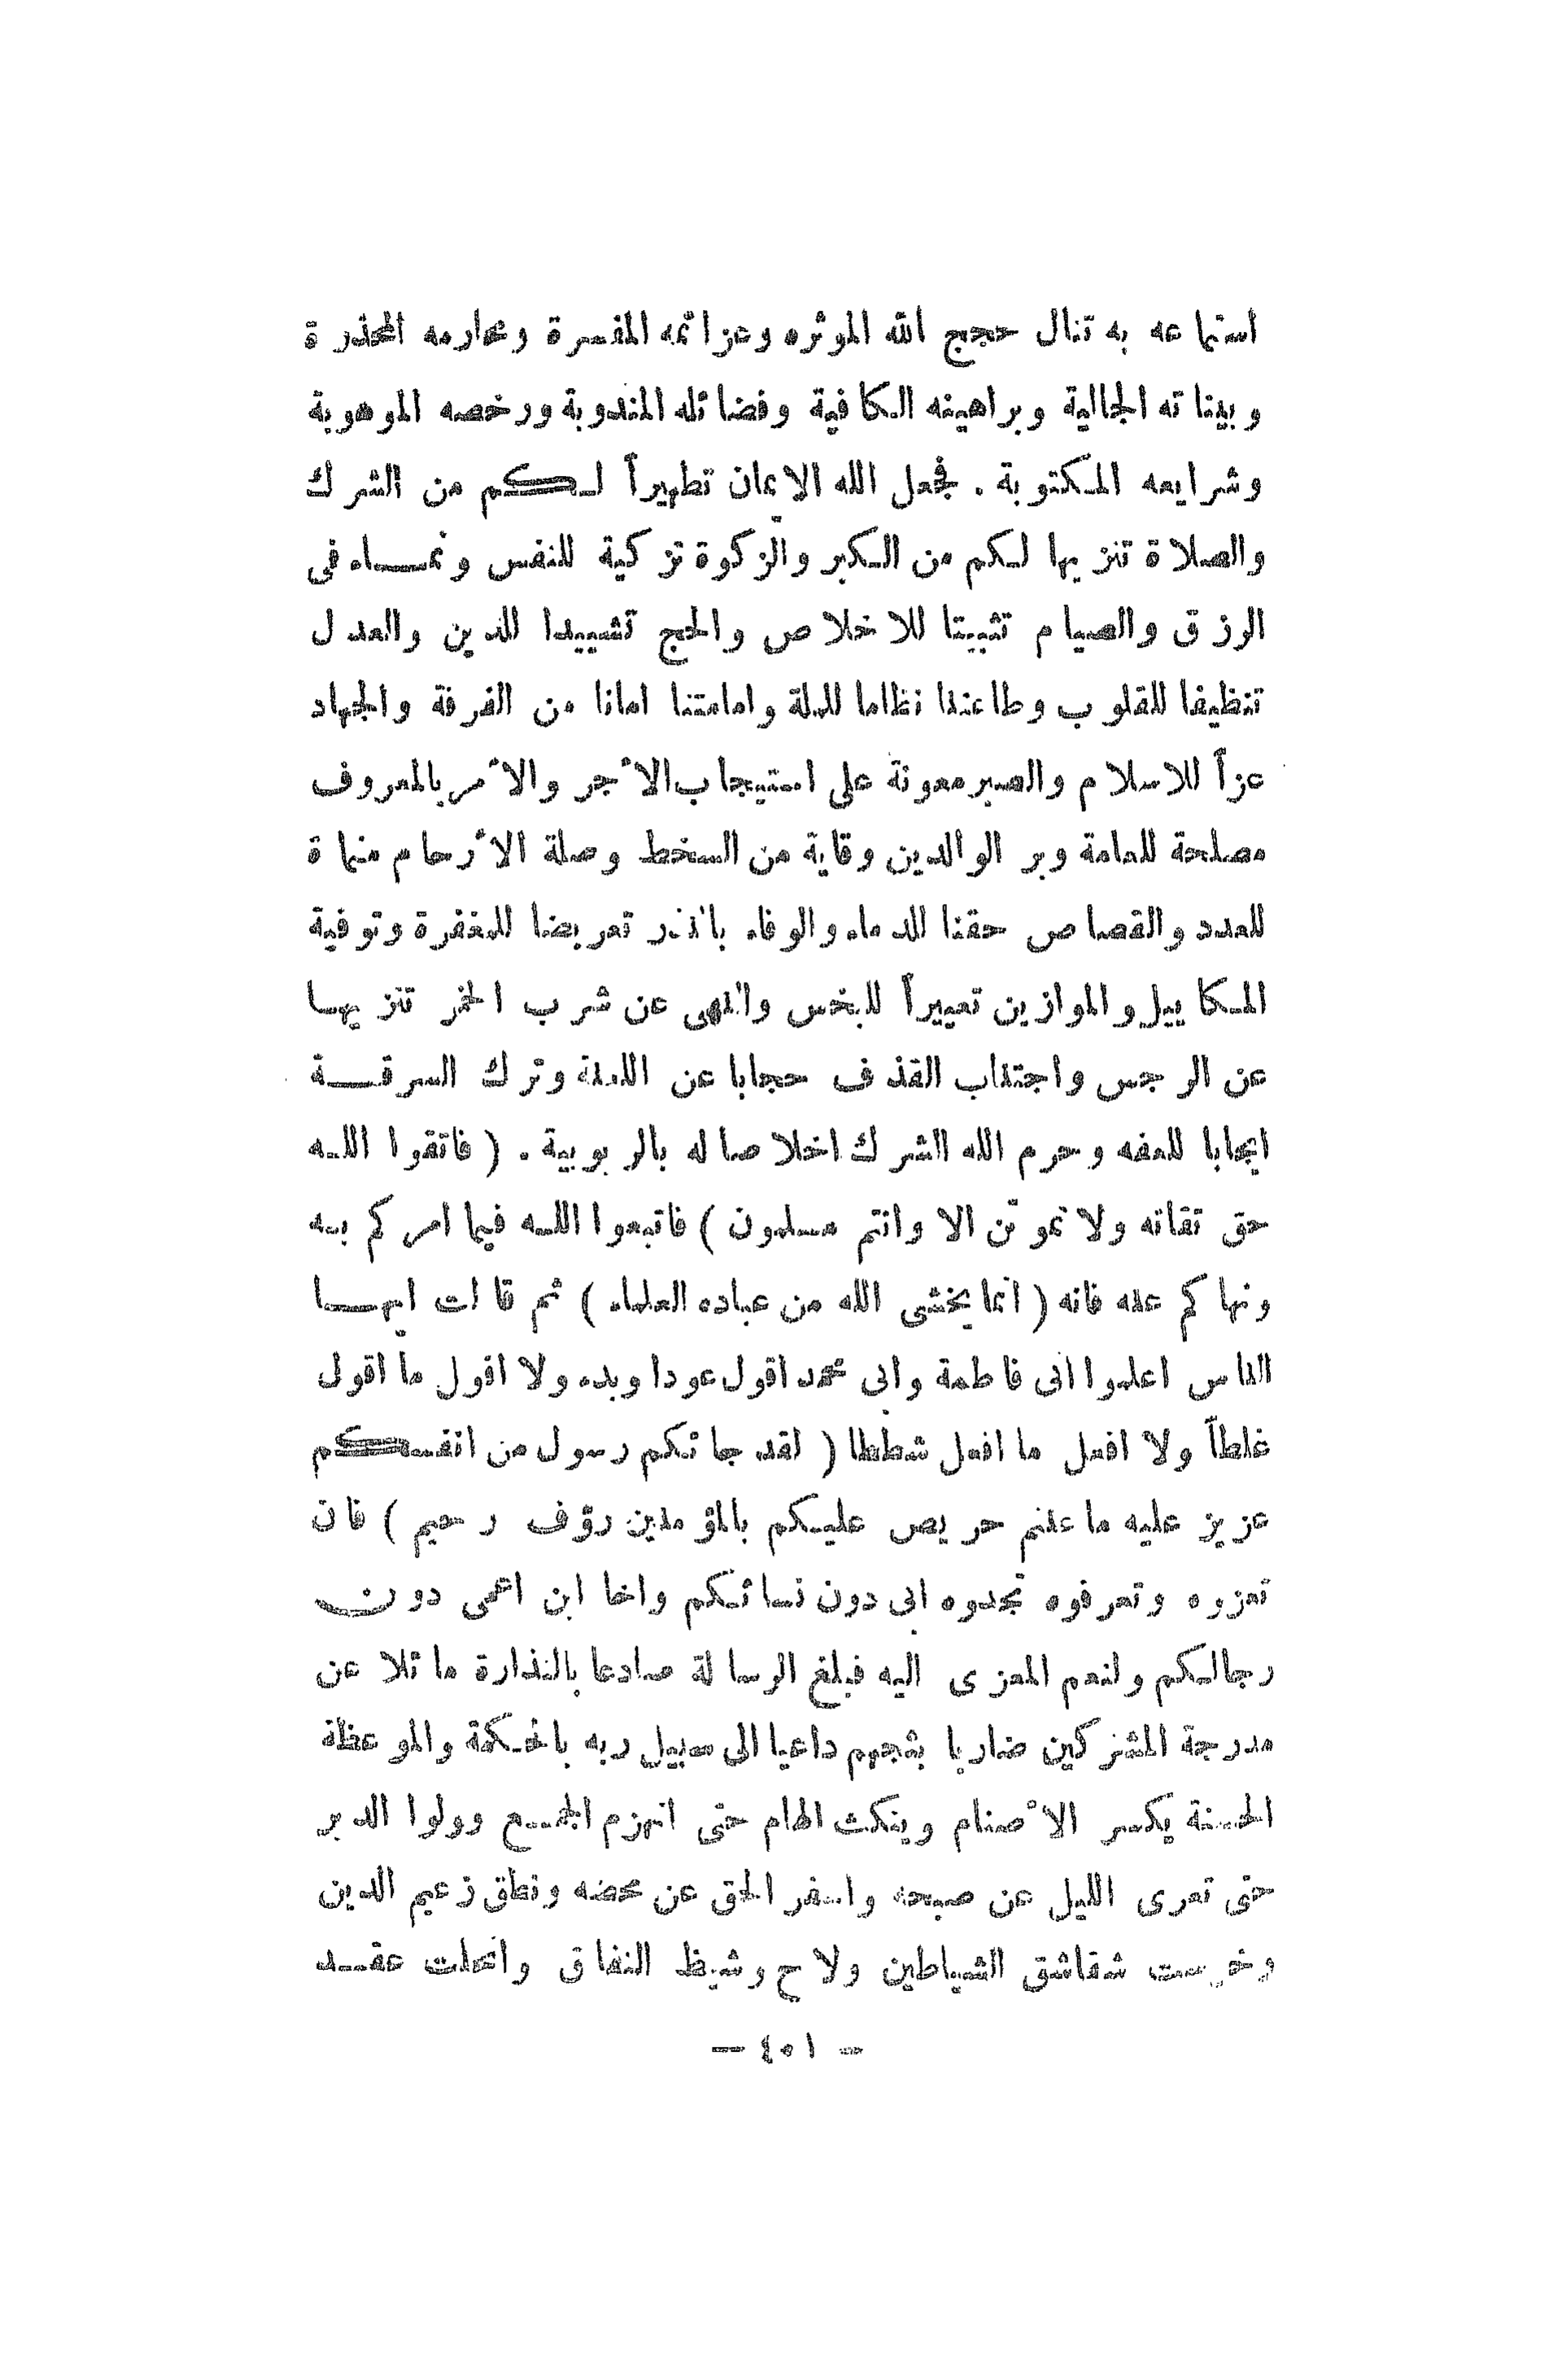 استماعه به تنال حجج الله الموثره وعزائمه المفسرة ومحارمه المحذرة
وبيناته الجالية وبراهينه الكافية وفضائله المندوبة ورخصه الموهوبة
وشرايعه المكتوبة . فجعل الله الايمان تطهيراً لكم من الشرك
والصلاة تنزيها لكم من الكبر والزكوة تزكية للنفس ونماء في
الرزق والصيام تثبيتا للاخلاص والحج تشييدا للدين والعدل
تنظيفا للقلوب وطاعتنا نظاما للملة وامامتنا امانا من الفرقة والجهاد
عزاً للاسلام والصبر معونة على استيجاب الأجر والأمر بالمعروف
مصلحة للعامة وبر الوالدين وقاية من السخط وصلة الأرحام منماة
للعدد والقصاص حقنا للدماء والوفاء بالنذر تعريضا للمغفرة وتوفية
المكاييل والموازين تعييراً للبخس والنهى عن شرب الخمر تنزيها
عن الرجس واجتناب القذف حجابا عن اللعنة وترك السرقة
ايجابا للعفه وحرم الله الشرك اخلاصا له بالربوبية . ( فاتقوا الله
حق تقاته ولا تموتن الا وانتم مسلمون ) فاتبعوا الله فيما امركم به
ونهاكم عنه فانه ( انما يخشى الله من عباده العلماء ) ثم قالت ايها
الناس اعلموا انى فاطمة وابى محمد اقول عودا وبدء ولا اقول ما اقول
غلطاً ولا افعل ما افعل شططا ( لقد جائكم رسول من انفسكم
عزيز عليه ما عنتم حريص عليكم بالمؤمنين رؤف رحيم ) فان
تعزوه وتعرفوه تجدوه ابى دون نسائكم واخا ابن اعمى دون
رجالكم ولنعم المعزى اليه فبلغ الرسالة صادعا بالنذارة مائلا عن
مدرجة المشركين ضاربا بثجهم داعيا الى سبيل ربه بالحكمة والموعظة
الحسنة يكسر الأصنام وينكث الهام حتى انهزم الجمع وولوا الدبر
حتى تعرى الليل عن صبحه واسفر الحق عن محضه ونطق زعيم الدين
وخرست شقاشق الشياطين ولاح وشيظ النفاق وانحلت عقد
— ٤٠١ —